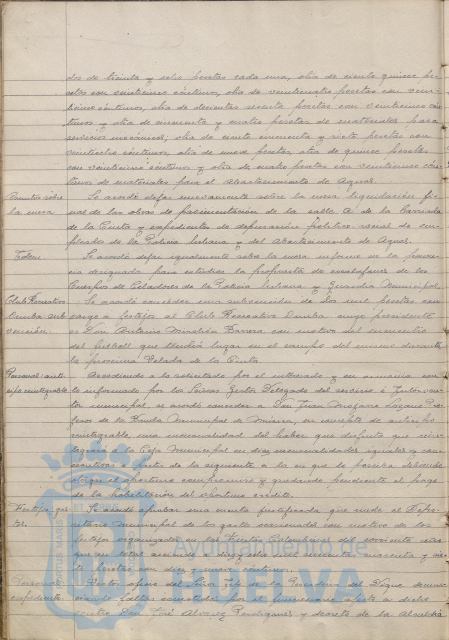 dos de treinta y seis pesetas cada una, otra de ciento quince pe-
setas con veinticinco céntimos, otra de veinticuatro pesetas con vein-
ticinco céntimos, otra de doscientas pesetas con veinticinco cén-
timos y otra de cincuenta y cuatro pesetas de materiales para
servicios mecánicos, otra de ciento cincuenta y siete pesetas con
veinticinco céntimos, otra de nueve pesetas, otra de quince pesetas
con veinticinco céntimos y otra de cuatro pesetas con veinticinco cén-
timos de materiales para el Abastecimiento de Aguas.
Asuntos sobre
la mesa
Se acordó dejar nuevamente sobre la mesa liquidación fi-
nal de las obras de pavimentación de la calle A. de la Barriada
de la Cinta y expedientes de depuración político social de em-
pleados de la Policía Urbana y del Abastecimiento de Aguas.
Idem
Se acordó dejar igualmente sobre la mesa informe de la Ponen-
cia designada para estudiar la propuesta de escalafones de los
Cuerpos de Celadores de la Policía Urbana y Guardia Municipal.
Club Recreativo
Onuba sub
vención.
Se acordó conceder una subvención de dos mil pesetas con
cargo a festejos al Club Recreativo Onuba cuyo presidente
es Don Antonio con motivo del encuentro
del football que tendrá lugar en el campo del mismo durante
la próxima Velada de la Cinta
Personal: anti
cipo reintegrable
Accediendo a lo solicitado por el interesado y en armonía con
lo informado por los Señores Gestor Delegado del servicio e Interven-
tor municipal, se acordó conceder a Don Juan Pro-
fesor de la Banda Municipal de Música, en concepto de anticipo
reintegrable, una mensualidad del haber que disfruta que rein-
tegrará a la Caja Municipal en diez mensualidades iguales y con-
secutivas a partir de la siguiente a la en que lo perciba, debiendo
otorgar el oportuno compromiso y quedando pendiente el pago
de la habilitación del oportuno crédito.
Festejos
Se acordó aprobar una cuenta justificada que rinde el Depo-
sitario Municipal de los gastos ocasionados con motivo de los
festejos organizados en las Fiestas Colombinas del corriente año
que en total asciende a diez y seis mil cuarenta y sie-
te pesetas con diez y nueve céntimos.
Personal
expediente
Visto oficio del de la del Dique denun-
ciando faltas cometidas por el funcionario afecto a dicho
centro Don José Alvarez y decreto de la Alcaldía
Ayuntamiento de
HUELVA